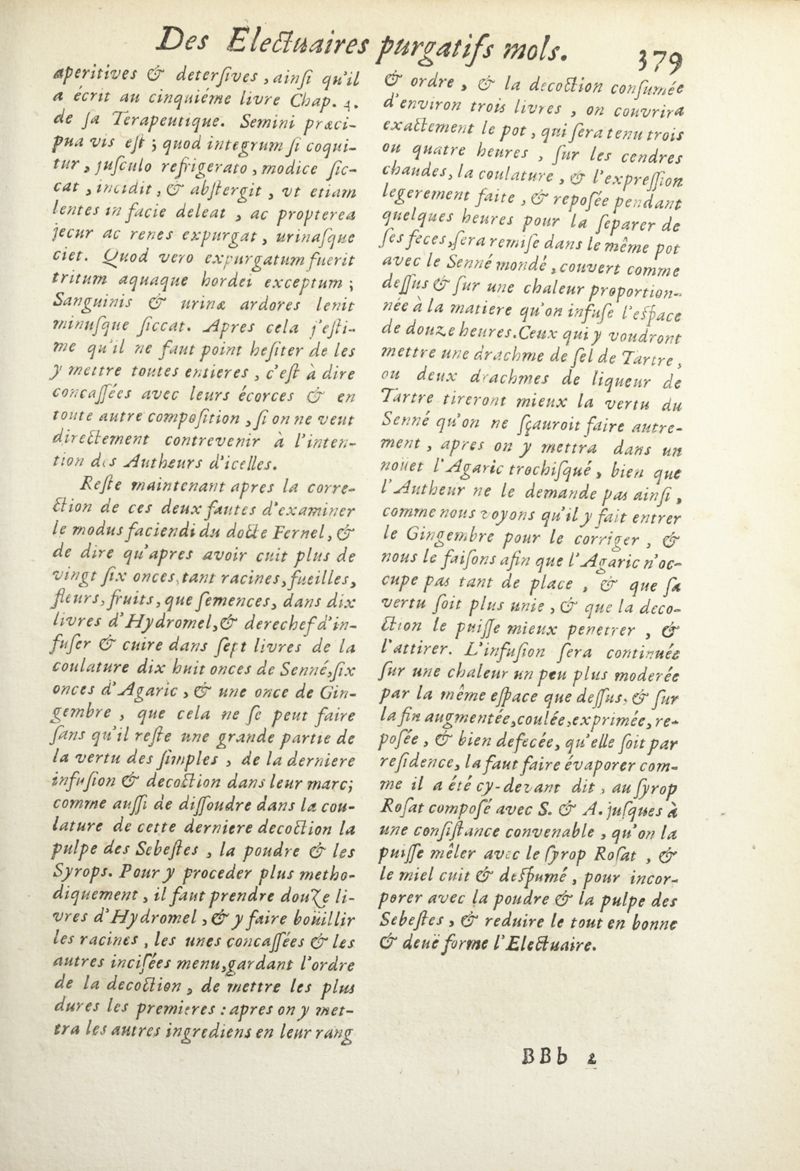 Des Electuaires purgatifs mols. 379
aperitives & deterſives, ainſi qu'il
a écrit au cinquiéme livre Chap. 4.
de ſa Terapeutique. Semini præci-
pua vis eſt ; quod integrum ſi coqui-
tur, juſculo refrigerato, modice ſic-
cat, incidit, & abſtergit, vt etiam
lentes in facie deleat, ac propterea
jecur ac renes expurgat, urinaſque
ciet. Quod vero expurgatum fuerit
tritum aquaque hordei exceptum ;
Sanguinis & urinæ ardores lenit
minuſque ſiccat. Apres cela j'eſti-
me qu'il ne faut point heſiter de les
y mettre toutes entieres, c'eſt à dire
concaſſées avec leurs écorces & en
toute autre compoſition, ſi on ne veut
directement contrevenir à l'inten-
tion des Autheurs d'icelles.
Reſte maintenant apres la corre-
ction de ces deux fautes d'examiner
le modus faciendi du docte Fernel, &
de dire qu'apres avoir cuit plus de
vingt ſix onces, tant racines, fueilles,
fleurs, fruits, que ſemences, dans dix
livres d'Hydromel, & derechef d'in-
fuſer & cuire dans ſept livres de la
coulature dix huit onces de Senné, ſix
onces d'Agaric, & une once de Gin-
gembre, que cela ne ſe peut faire
ſans qu'il reſte une grande partie de
la vertu des ſimples, de la derniere
infuſion & decoction dans leur marc;
comme auſſi de diſſoudre dans la cou-
lature de cette derniere decoction la
pulpe des Sebeſtes, la poudre & les
Syrops. Pour y proceder plus metho-
diquement, il faut prendre douze li-
vres d'Hydromel, & y faire boüillir
les racines, les unes concaſſées & les
autres inciſées menu, gardant l'ordre
de la decoction, de mettre les plus
dures les premieres : apres on y met-
tra les autres ingrediens en leur rang
& ordre, & la decoction conſumée
d'environ trois livres, on couvrira
exactement le pot, qui ſera tenu trois
ou quatre heures, ſur les cendres
chaudes, la coulature, & l'expreſſion
legerement faite, & repoſée pendant
quelques heures pour la ſeparer de
ſes feces, ſera remiſe dans le même pot
avec le Senné mondé, couvert comme
deſſus & ſur une chaleur proportion-
née à la matiere qu'on infuſe l'eſpace
de douze heures. Ceux qui y voudront
mettre une drachme de ſel de Tartre,
ou deux drachmes de liqueur de
Tartre tireront mieux la vertu du
Senné qu'on ne ſçauroit faire autre-
ment, apres on y mettra dans un
noüet l'Agaric trochiſqué, bien que
l'Autheur ne le demande pas ainſi,
comme nous voyons qu'il y fait entrer
le Gingembre pour le corriger, &
nous le faiſons afin que l'Agaric n'oc-
cupe pas tant de place, & que ſa
vertu ſoit plus unie, & que la deco-
ction le puiſſe mieux penetrer, &
l'attirer. L'infuſion ſera continuée
ſur une chaleur un peu plus moderée
par la même eſpace que deſſus, & ſur
la fin augmentée, coulée, exprimée, re-
poſée, & bien defecée, qu'elle ſoit par
reſidence, la faut faire évaporer com-
me il a été cy-devant dit, au ſyrop
Roſat compoſé avec S. & A. juſques à
une conſiſtance convenable, qu'on la
puiſſe mêler avec le ſyrop Roſat, &
le miel cuit & deſpumé, pour incor-
porer avec la poudre & la pulpe des
Sebeſtes, & reduire le tout en bonne
& deuë forme l'Electuaire.
BBb 2